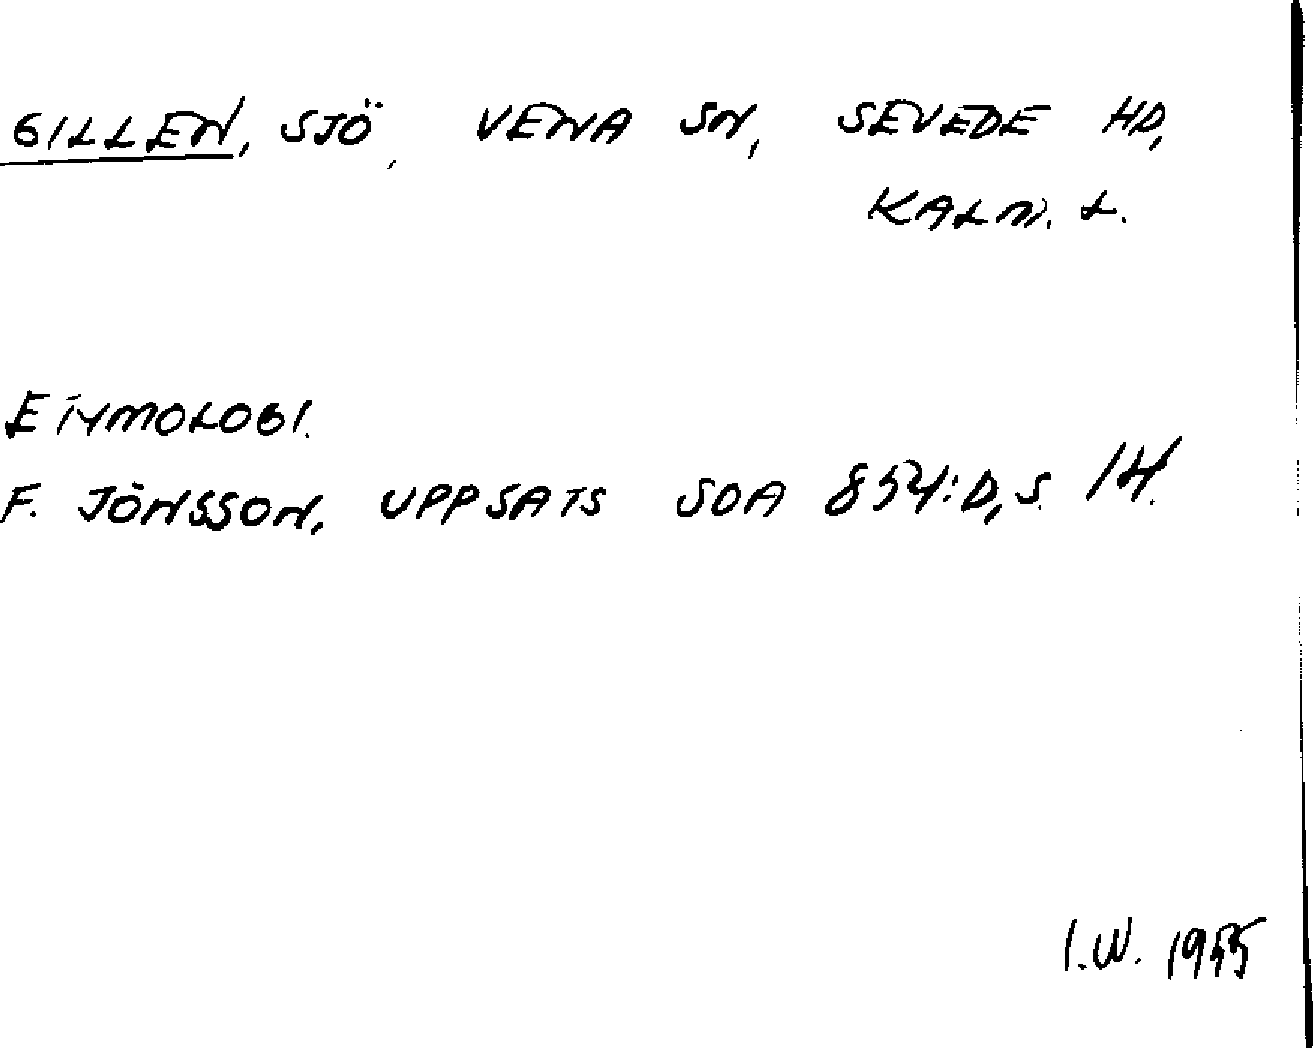 GILLEN, SJÖ, VENA SN, SEVEDE HD,
KALM. L.
ETYMOLOGI.
F. JÖNSSON, UPPSATS SOA 854:D, S. 14.
I.W. 1955